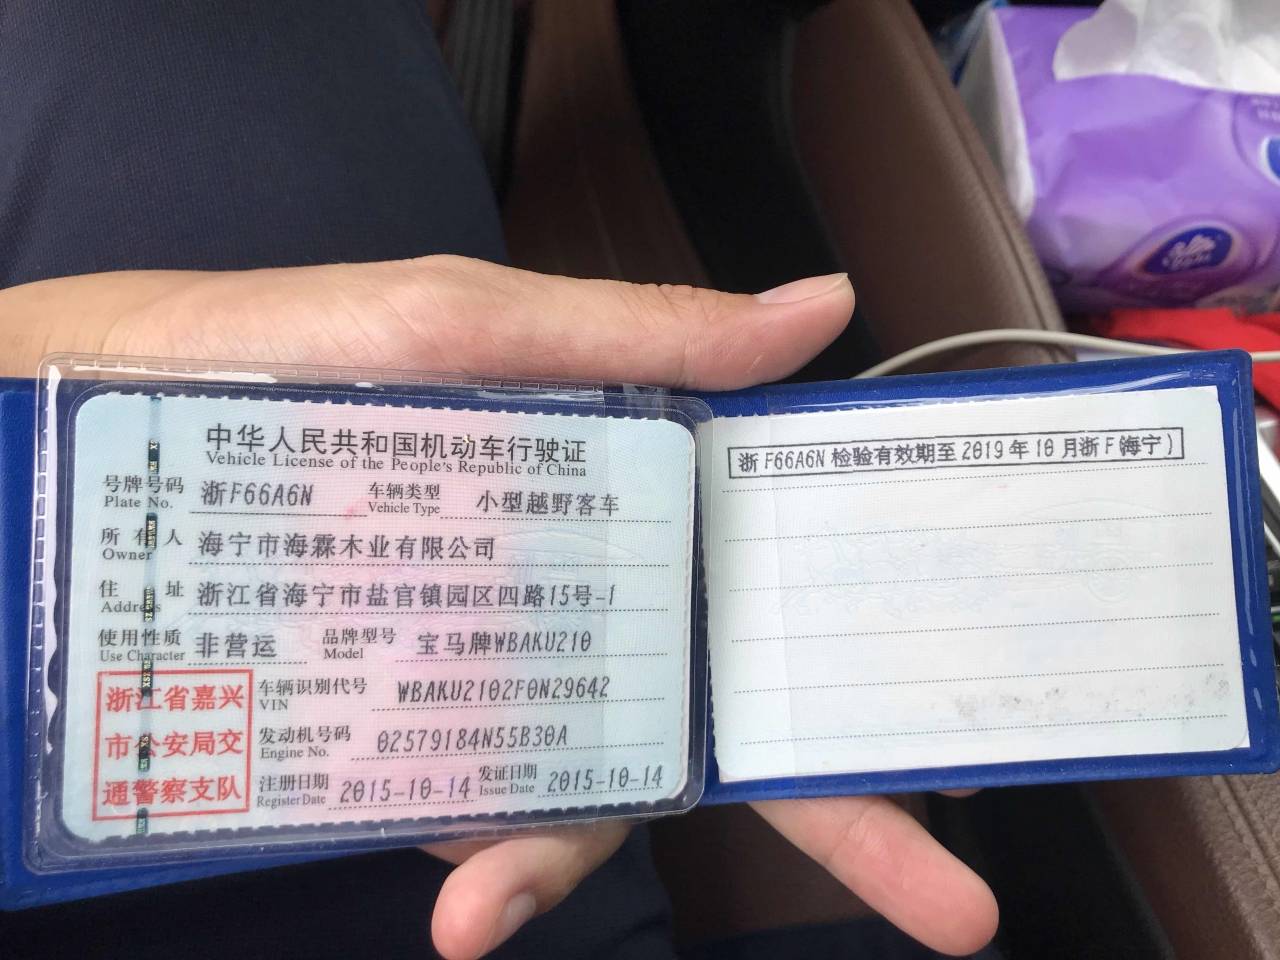 中华人民共和国机动车行驶证
Vehicle License of the People's Republic of China
号牌号码 浙F66A6N 车辆类型 小型越野客车
Plate No. Vehicle Type
所有人 海宁市海霖木业有限公司
Owner
住址 浙江省海宁市盐官镇园区四路15号-1
Address
使用性质 非营运 品牌型号 宝马牌WBAKU210
Use Character Model
浙江省嘉兴
市公安局交
通警察支队
车辆识别代号 WBAKU2102F0N29642
VIN
发动机号码 02579184N55B30A
Engine No.
注册日期 2015-10-14 发证日期 2015-10-14
Register Date Issue Date
浙F66A6N检验有效期至2019年10月浙F(海宁)